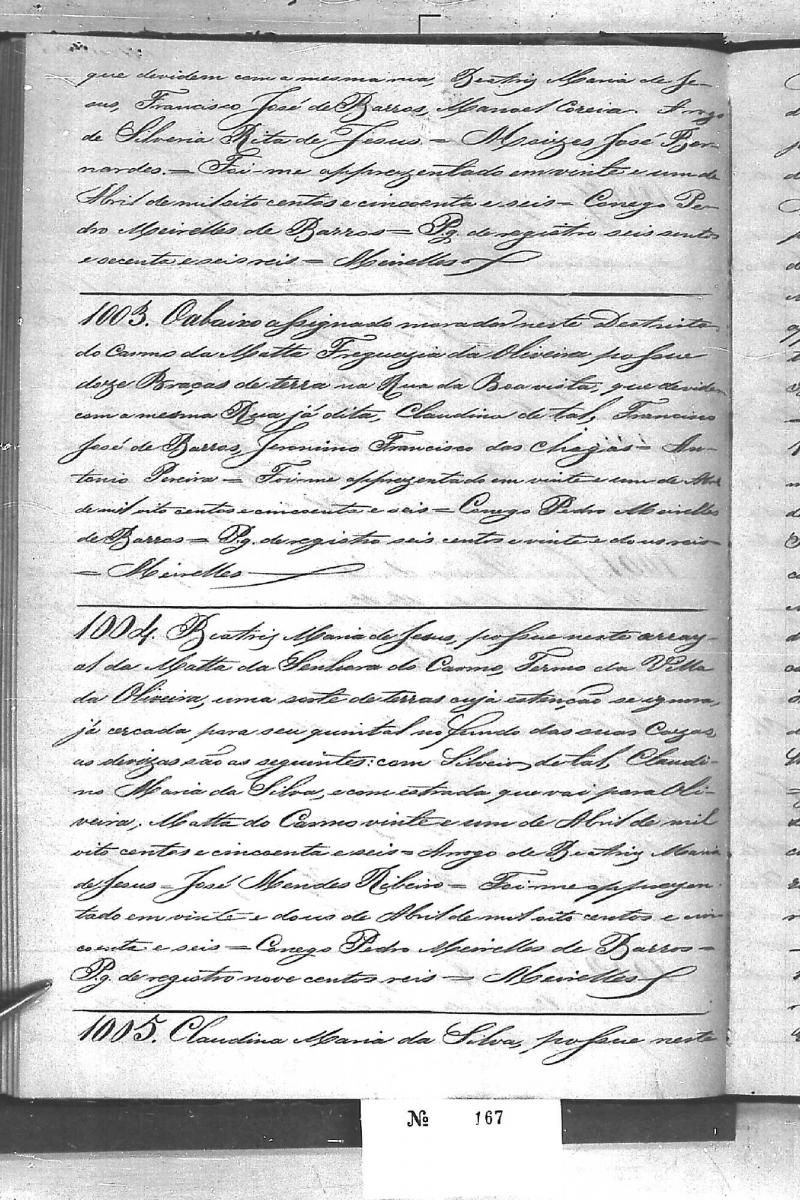 que devidem com a mesma rua, Beatriz Maria de Je-
sus, Francisco José de Barros, Manoel Coreia. Arogo
de Silveria Rita de Jesus = Moizes José Ber-
nardes. = Foi-me apprezentado em vinte e um de
Abril de mil oito centos e cincoenta e seis = Conego Pe-
dro Meirelles de Barros = Pg. de registro seis sentos
e secenta e seis reis = Meirelles
1003. O abaixo assignado morador neste Destricto
do Carmo da Matta Freguezia da Oliveira, possue
doze Braças de terra na Rua da Boa vista, que devidem
com a mesma Rua já dita, Claudina de tal, Francisco
José de Barros, Jeronimo Francisco das Chagas = An-
tonio Pereira = Foi-me apprezentado em vinte e um de Abril
de mil oito centos e cincoenta e seis = Conego Pedro Meirelles
de Barros = Pg. de registro seis centos e vinte e dous reis
= Meirelles
1004. Beatriz Maria de Jesus, possue neste array-
al da Matta da Senhora do Carmo, Termo da Villa
da Oliveira, uma sorte de terras cuja estenção se ignora,
já cercada para seu quintal no fundo das suas Cazas
as devizas são as seguintes: com Silveira de tal, Claudi-
no Maria da Silva, e com estrada que vai para Oli-
veira; Matta do Carmo vinte e um de Abril de mil
oito centos e cincoenta e seis = Arrogo de Beatriz Maria
de Jesus = José Mendes Ribeiro = Foi-me apprezen-
tado em vinte e dous de Abril de mil oito centos e cin
coenta e seis = Conego Pedro Meirelles de Barros =
Pg. de registro nove centos reis = Meirelles
1005. Claudina Maria da Silva, possue neste
№ 167